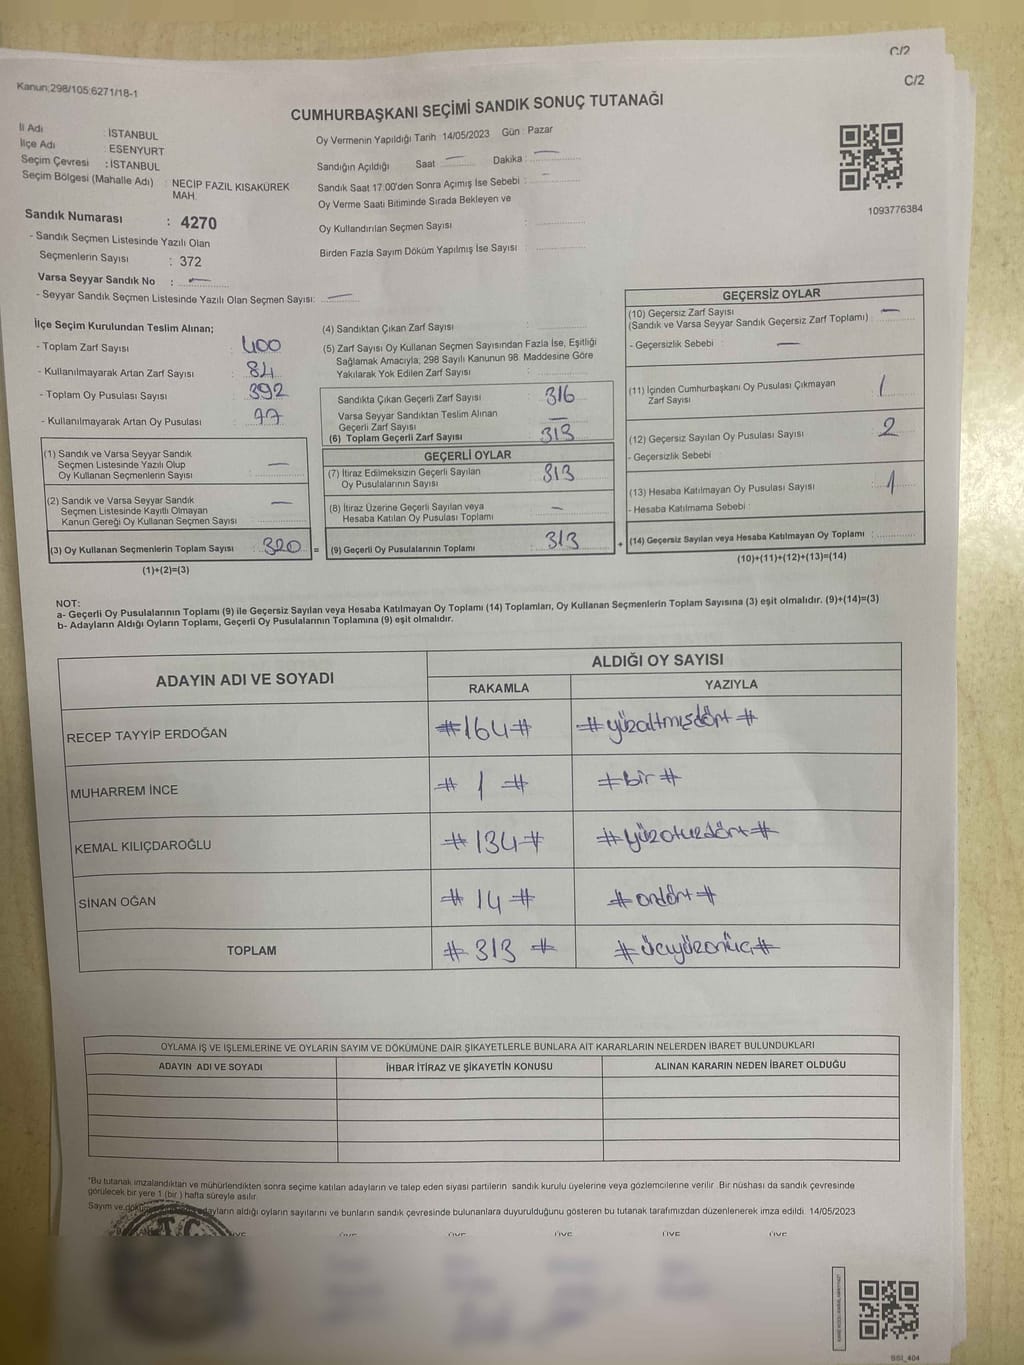 C/2
C/2
Kanun;298/105:6271/18-1
CUMHURBAŞKANI SEÇİMİ SANDIK SONUÇ TUTANAĞI
İl Adı : İSTANBUL
İlçe Adı : ESENYURT
Seçim Çevresi : İSTANBUL
Seçim Bölgesi (Mahalle Adı) : NECİP FAZIL KISAKÜREK
MAH.
Sandık Numarası : 4270
- Sandık Seçmen Listesinde Yazılı Olan
Seçmenlerin Sayısı : 372
Varsa Seyyar Sandık No : —
- Seyyar Sandık Seçmen Listesinde Yazılı Olan Seçmen Sayısı: —
Oy Vermenin Yapıldığı Tarih 14/05/2023 Gün : Pazar
Sandığın Açıldığı Saat — Dakika : —
Sandık Saat 17.00'den Sonra Açımış İse Sebebi : —
Oy Verme Saati Bitiminde Sırada Bekleyen ve
Oy Kullandırılan Seçmen Sayısı :
Birden Fazla Sayım Döküm Yapılmış İse Sayısı :
1093776384
İlçe Seçim Kurulundan Teslim Alınan;
- Toplam Zarf Sayısı : 400
- Kullanılmayarak Artan Zarf Sayısı : 84
- Toplam Oy Pusulası Sayısı : 392
- Kullanılmayarak Artan Oy Pusulası : 77
(1) Sandık ve Varsa Seyyar Sandık
Seçmen Listesinde Yazılı Olup
Oy Kullanan Seçmenlerin Sayısı : —
(2) Sandık ve Varsa Seyyar Sandık
Seçmen Listesinde Kayıtlı Olmayan
Kanun Gereği Oy Kullanan Seçmen Sayısı : —
(3) Oy Kullanan Seçmenlerin Toplam Sayısı : 320 =
(1)+(2)=(3)
(4) Sandıktan Çıkan Zarf Sayısı :
(5) Zarf Sayısı Oy Kullanan Seçmen Sayısından Fazla İse, Eşitliği
Sağlamak Amacıyla; 298 Sayılı Kanunun 98. Maddesine Göre
Yakılarak Yok Edilen Zarf Sayısı :
Sandıkta Çıkan Geçerli Zarf Sayısı : 316
Varsa Seyyar Sandıktan Teslim Alınan
Geçerli Zarf Sayısı : —
(6) Toplam Geçerli Zarf Sayısı : 313
GEÇERLİ OYLAR
(7) İtiraz Edilmeksizin Geçerli Sayılan
Oy Pusulalarının Sayısı : 313
(8) İtiraz Üzerine Geçerli Sayılan veya
Hesaba Katılan Oy Pusulası Toplamı : —
(9) Geçerli Oy Pusulalarının Toplamı : 313 +
GEÇERSİZ OYLAR
(10) Geçersiz Zarf Sayısı
(Sandık ve Varsa Seyyar Sandık Geçersiz Zarf Toplamı) : —
- Geçersizlik Sebebi : —
(11) İçinden Cumhurbaşkanı Oy Pusulası Çıkmayan
Zarf Sayısı : 1
(12) Geçersiz Sayılan Oy Pusulası Sayısı : 2
- Geçersizlik Sebebi :
(13) Hesaba Katılmayan Oy Pusulası Sayısı : 1
- Hesaba Katılmama Sebebi :
(14) Geçersiz Sayılan veya Hesaba Katılmayan Oy Toplamı :
(10)+(11)+(12)+(13)=(14)
NOT:
a- Geçerli Oy Pusulalarının Toplamı (9) ile Geçersiz Sayılan veya Hesaba Katılmayan Oy Toplamı (14) Toplamları, Oy Kullanan Seçmenlerin Toplam Sayısına (3) eşit olmalıdır. (9)+(14)=(3)
b- Adayların Aldığı Oyların Toplamı, Geçerli Oy Pusulalarının Toplamına (9) eşit olmalıdır.
ADAYIN ADI VE SOYADI
ALDIĞI OY SAYISI
RAKAMLA YAZIYLA
RECEP TAYYİP ERDOĞAN #164# #yüzaltmışdört#
MUHARREM İNCE # 1 # #bir#
KEMAL KILIÇDAROĞLU #134# #yüzotuzdört#
SİNAN OĞAN #14# #ondört#
TOPLAM #313# #üçyüzonüç#
OYLAMA İŞ VE İŞLEMLERİNE VE OYLARIN SAYIM VE DÖKÜMÜNE DAİR ŞİKAYETLERLE BUNLARA AİT KARARLARIN NELERDEN İBARET BULUNDUKLARI
ADAYIN ADI VE SOYADI İHBAR İTİRAZ VE ŞİKAYETİN KONUSU ALINAN KARARIN NEDEN İBARET OLDUĞU
*Bu tutanak imzalandıktan ve mühürlendikten sonra seçime katılan adayların ve talep eden siyasi partilerin sandık kurulu üyelerine veya gözlemcilerine verilir. Bir nüshası da sandık çevresinde
görülecek bir yere 1 (bir) hafta süreyle asılır.
Sayım ve adayların aldığı oyların sayılarını ve bunların sandık çevresinde bulunanlara duyurulduğunu gösteren bu tutanak tarafımızdan düzenlenerek imza edildi. 14/05/2023
T.C.
ÜYE ÜYE ÜYE ÜYE ÜYE
SSI_404